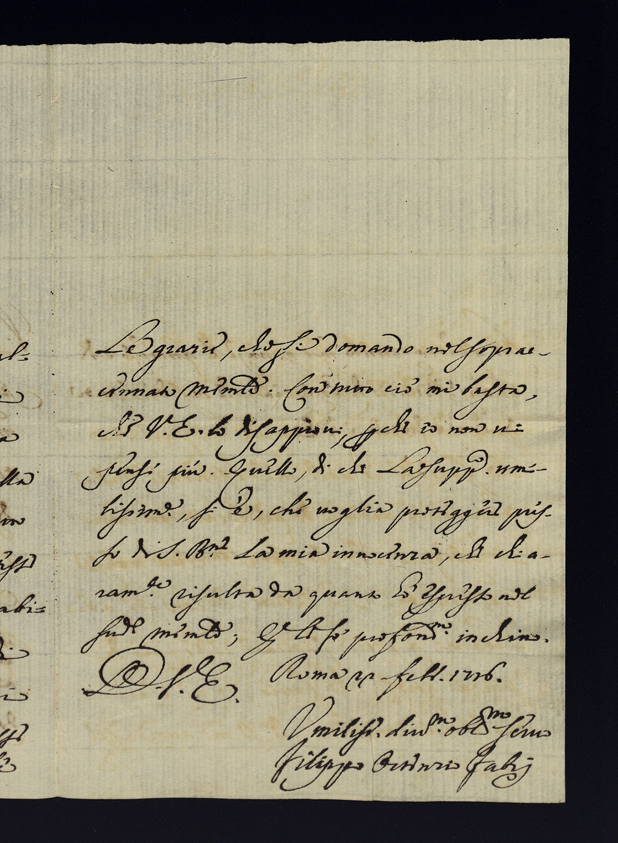 Le grazie, che si domando nel soprac-
cennato memle. Con tutto ciò mi basta,
che V. E. lo disapprovi, p che io non vi
pensi più. Quello, di che La supp. umi-
lissime., si è, che voglia proteggere pres-
so di S. Bne. La mia innocenza, che chia-
ram.te risulta da quanto hò espresso nel
sud.o memle; e le fo profond.mo inchino.
D V. E. Roma 22 febb. 1716.
Umiliss. div.mo obb.mo Servo
Filippo Ottavio Fabij